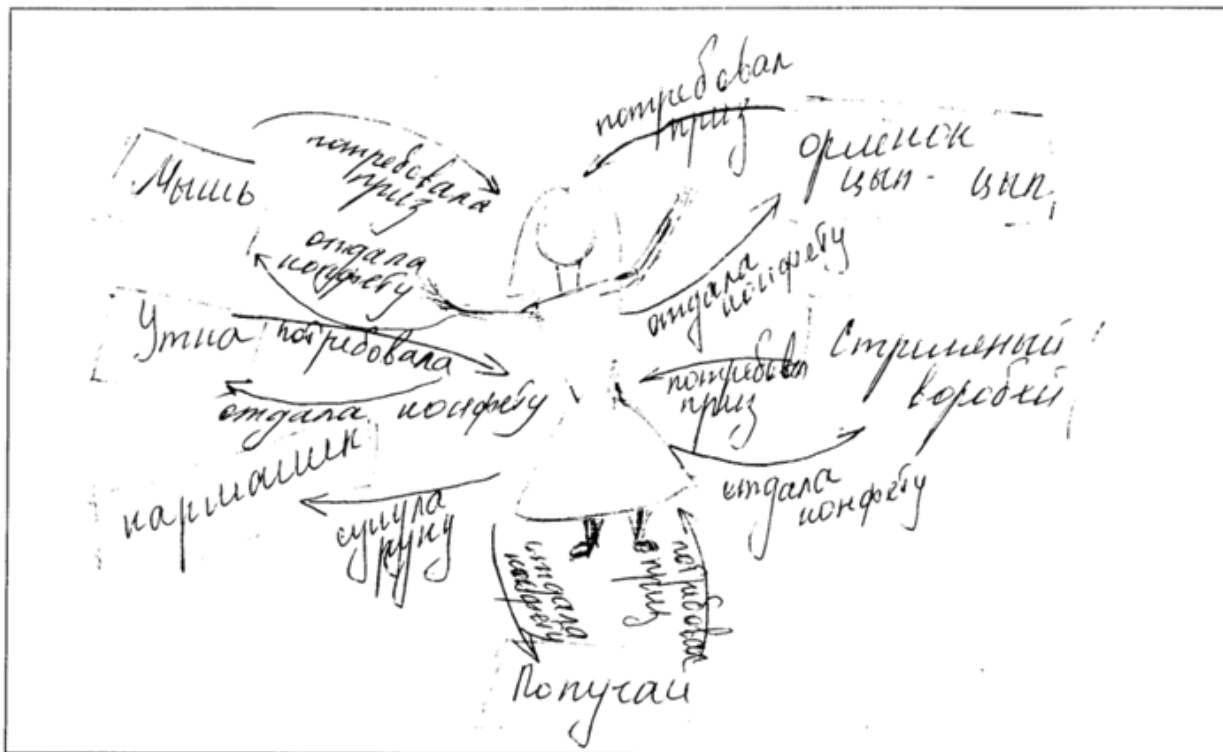 потребовал
приз
орленок
цып - цып
Мышь
потребовала
приз
отдала
конфету
отдала
конфету
Утка
потребовала
Стриляный
воробей
потребовал
приз
отдала конфету
кармашек
сунула
руку
отдала
конфету
отдала
конфету
потребовал
приз
Попугаи